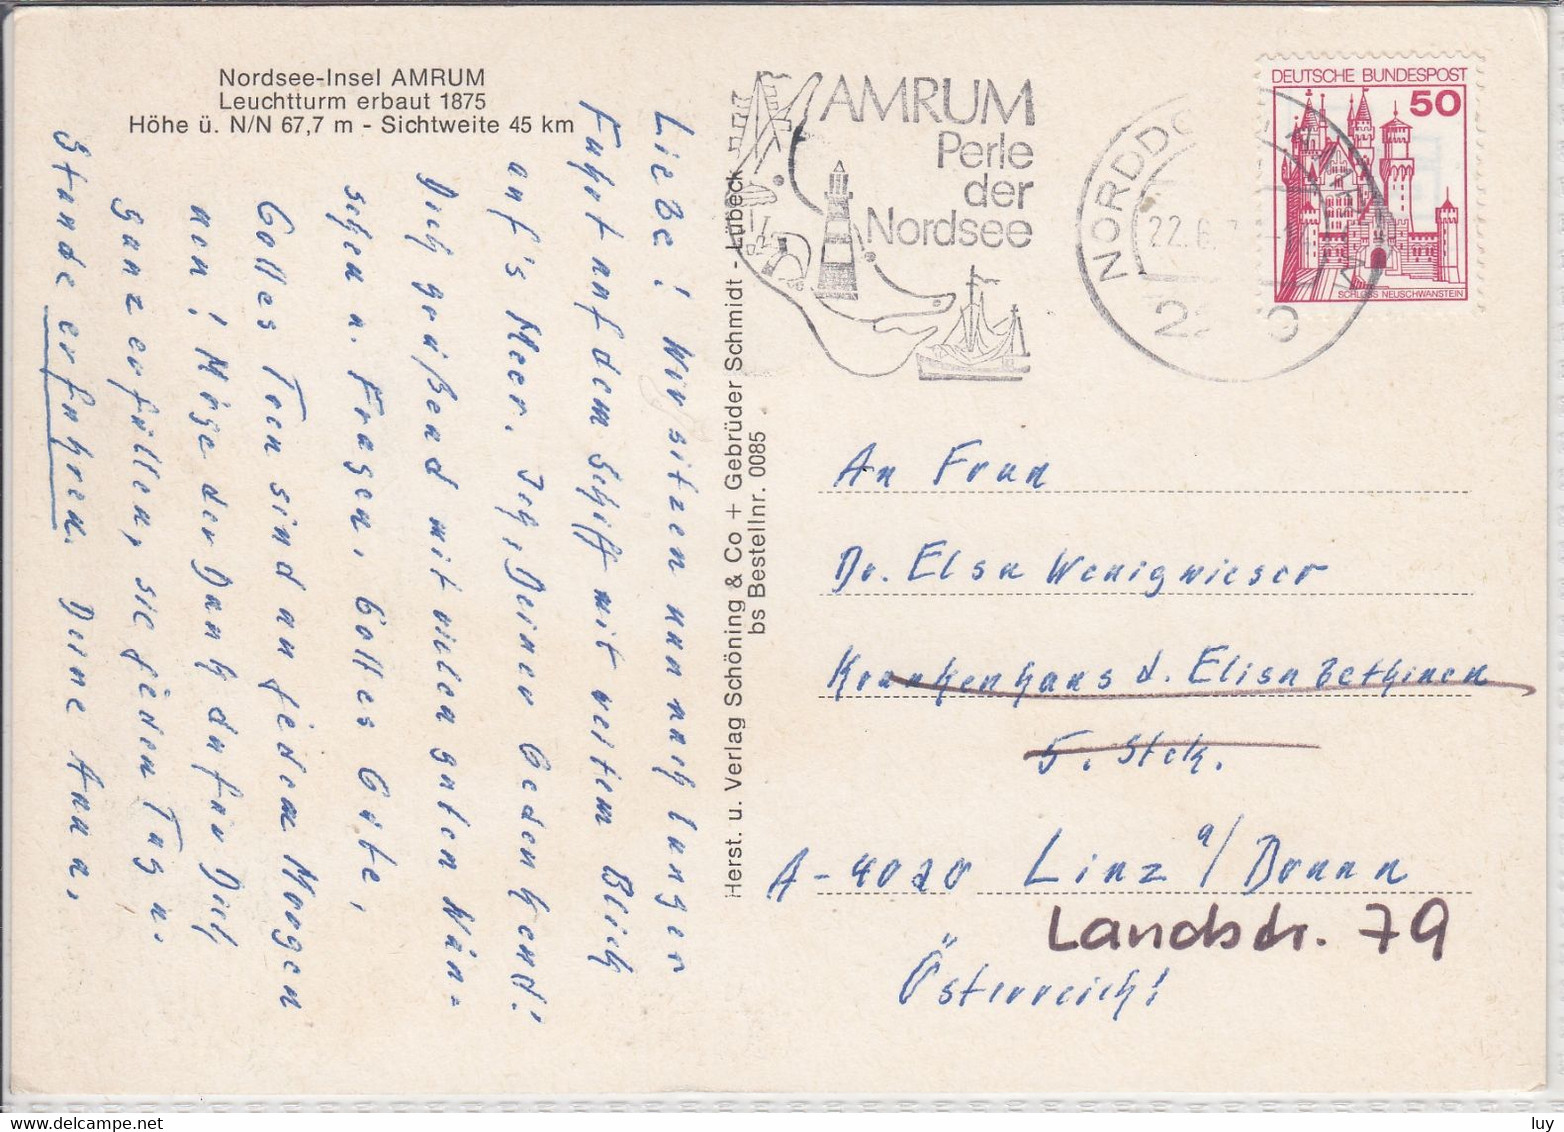 Nordsee-Insel AMRUM
Leuchtturm erbaut 1875
Höhe ü. N/N 67,7 m - Sichtweite 45 km
Liebe! Wir sitzen nun nach langer
Fahrt auf dem Schiff mit weitem Blick
auf's Meer. Ich, Deiner Gedenkend!
Dich grüßend mit vielen guten Wün-
schen u. Fragen. Gottes Güte,
Gottes Treu sind an jedem Morgen
neu! Möge der Dank dafür Dich
ganz erfüllen, sie jeden Tag u.
Stunde erfahren. Deine Anna.
Herst. u. Verlag Schöning & Co + Gebrüder Schmidt - Lübeck
bs Bestellnr. 0085
AMRUM
Perle
der
Nordsee
22.6.
DEUTSCHE BUNDESPOST
50
SCHLOSS NEUSCHWANSTEIN
An Frau
Dr. Elsa Wenigwieser
Krankenhaus d. Elisabethinen
5. Stck.
A-4020 Linz a/Donau
Landstr. 79
Österreich!
luy
www.delcampe.net